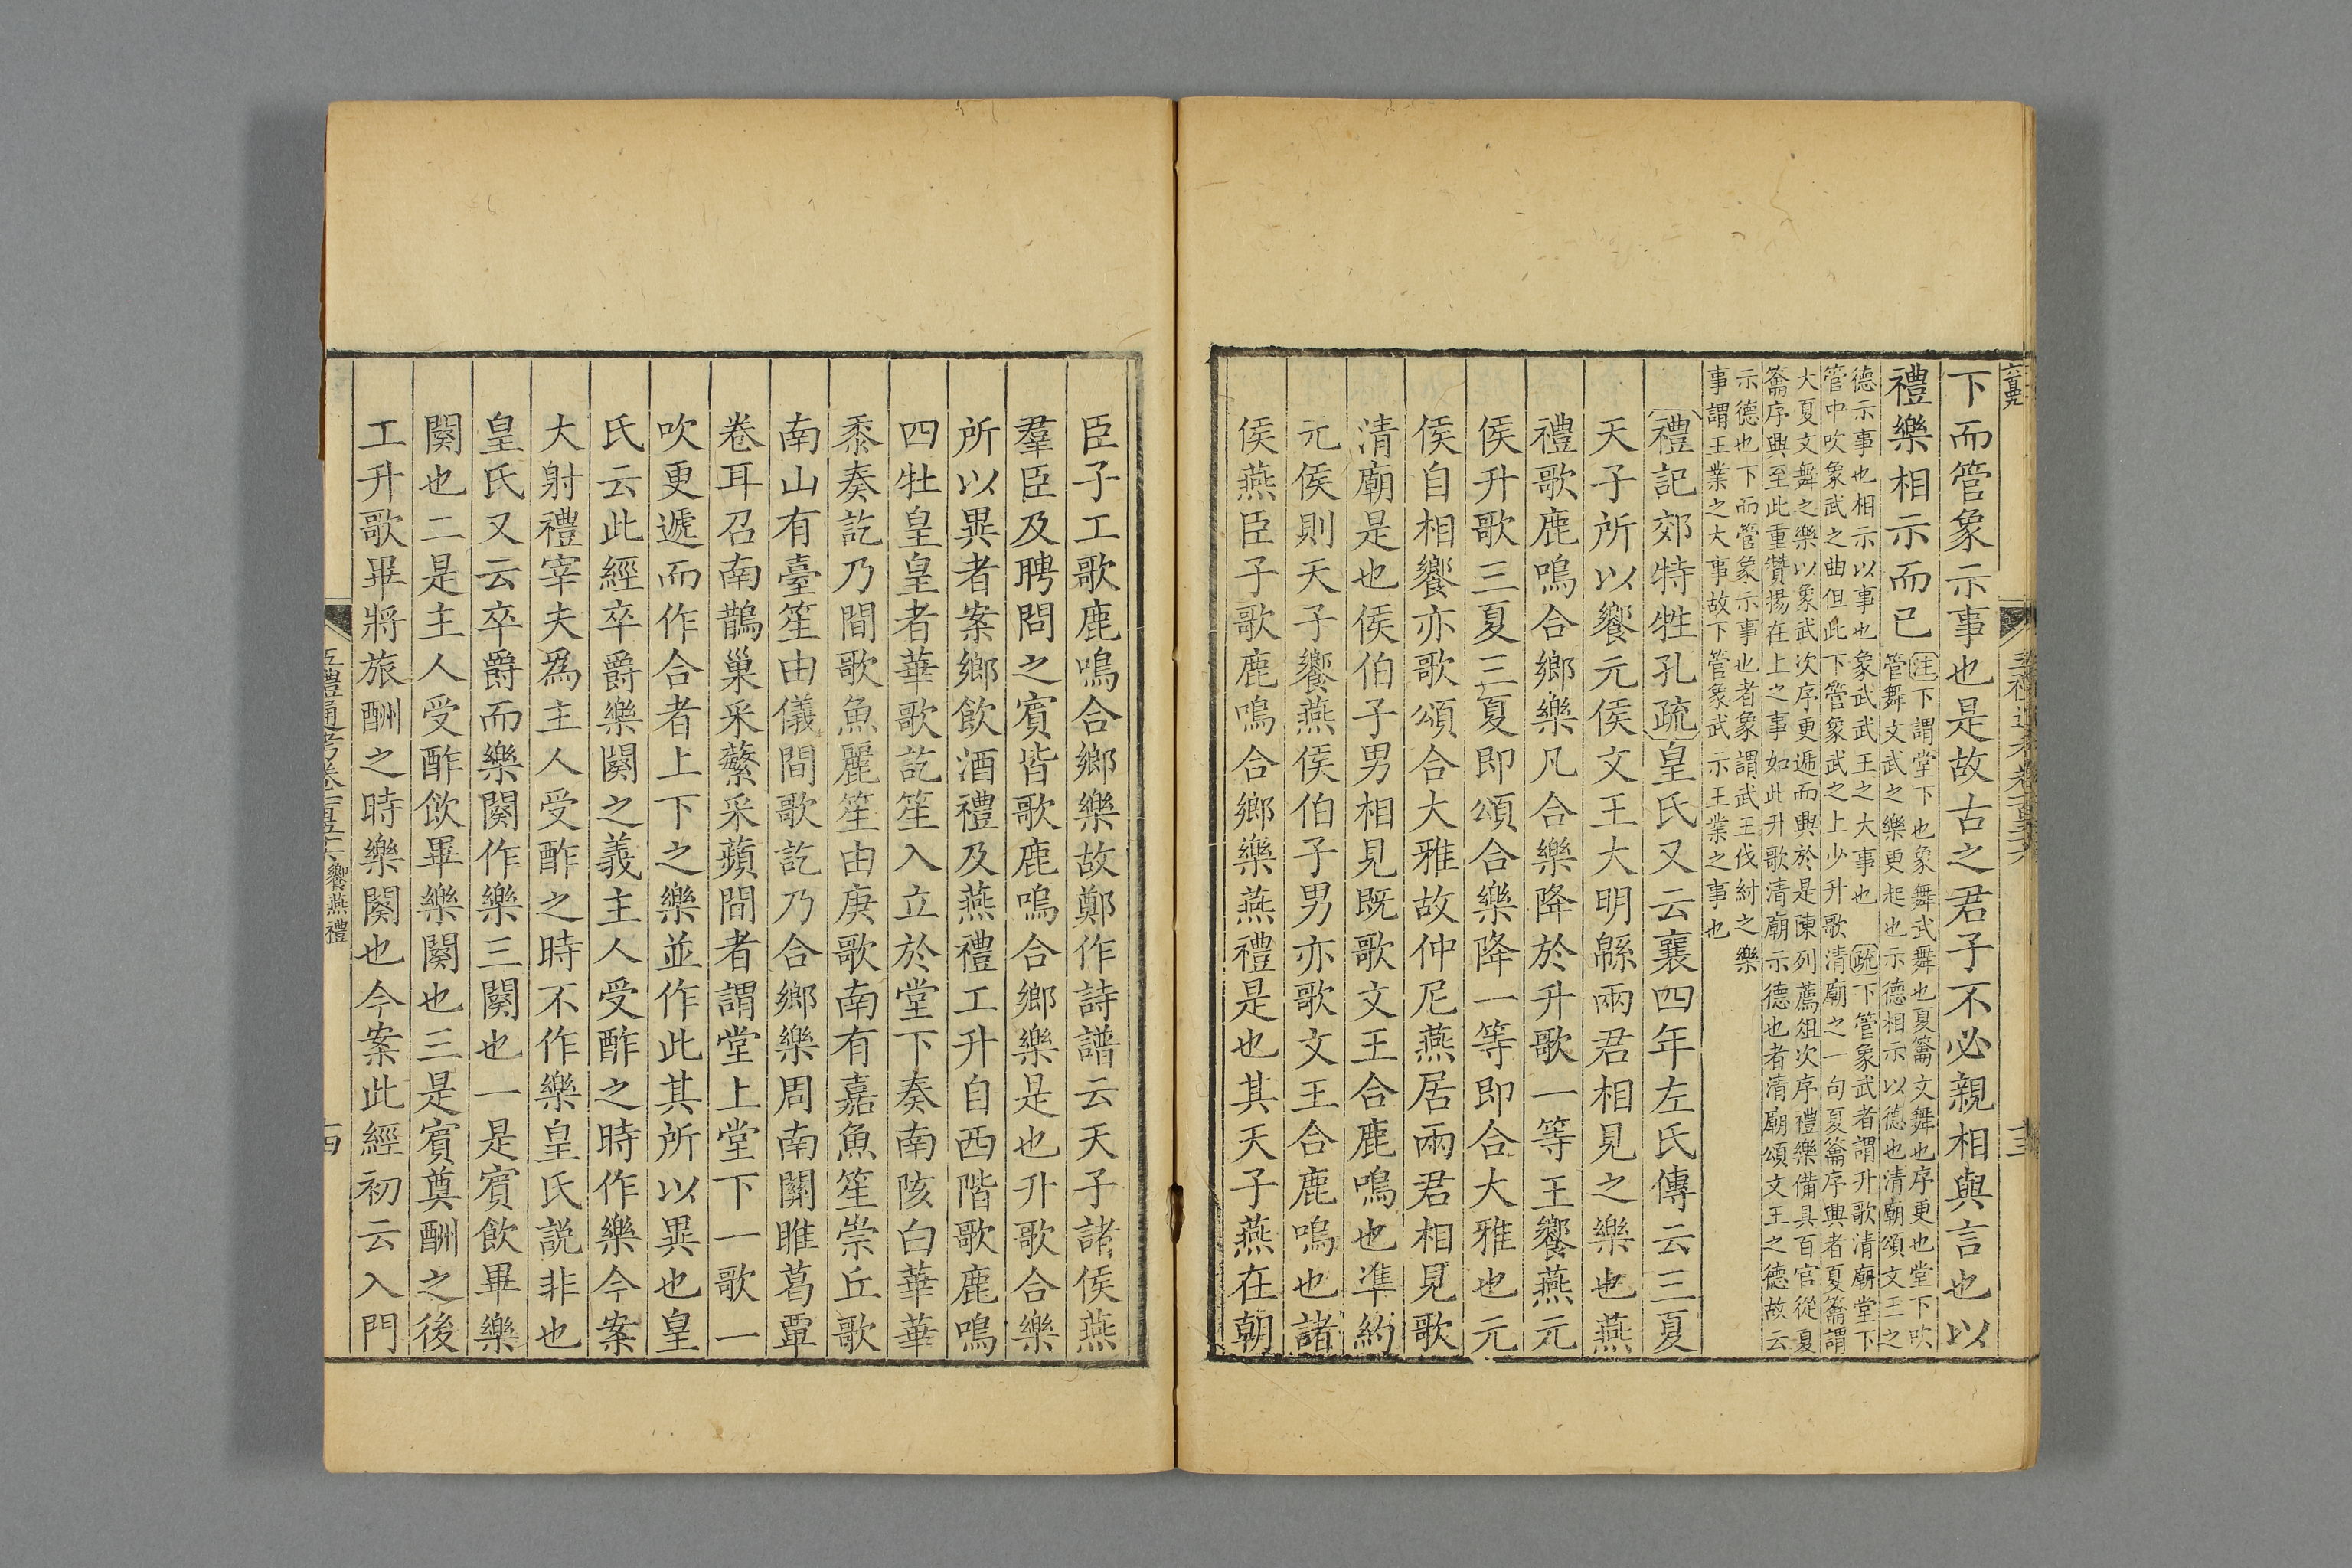 下而管象示事也是故古之君子不必親相與言也以
禮樂相示而已
注下謂堂下也象舞武舞也夏籥文舞也序更也堂下吹
管舞文武之樂更起也示德相示以德也清廟頌文王之
德示事也相示以事也象武武王之大事也 疏下管象武者謂升歌清廟堂下
管中吹象武之曲但此下管象武之上少升歌清廟之一句夏籥序興者夏籥謂
大夏文舞之樂以象武次序更遞而興於是陳列薦俎次序禮樂備具百官從夏
籥序興至此重贊揚在上之事如此升歌清廟示德也者清廟頌文王之德故云
示德也下而管象示事也者象謂武王伐紂之樂
事謂王業之大事故下管象武示王業之事也
禮記郊特牲孔疏皇氏又云襄四年左氏傳云三夏
天子所以饗元侯文王大明緜兩君相見之樂也燕
禮歌鹿鳴合鄉樂凡合樂降於升歌一等王饗燕元
侯升歌三夏三夏即頌合樂降一等即合大雅也元
侯自相饗亦歌頌合大雅故仲尼燕居兩君相見歌
清廟是也侯伯子男相見既歌文王合鹿鳴也準約
元侯則天子饗燕侯伯子男亦歌文王合鹿鳴也諸
侯燕臣子歌鹿鳴合鄉樂燕禮是也其天子燕在朝
臣子工歌鹿鳴合鄉樂故鄭作詩譜云天子諸侯燕
羣臣及聘問之賓皆歌鹿鳴合鄉樂是也升歌合樂
所以異者案鄉飲酒禮及燕禮工升自西階歌鹿鳴
四牡皇皇者華歌訖笙入立於堂下奏南陔白華華
黍奏訖乃間歌魚麗笙由庚歌南有嘉魚笙崇丘歌
南山有臺笙由儀間歌訖乃合鄉樂周南關雎葛覃
卷耳召南鵲巢采蘩采蘋間者謂堂上堂下一歌一
吹更遞而作合者上下之樂並作此其所以異也皇
氏云此經卒爵樂闋之義主人受酢之時作樂今案
大射禮宰夫爲主人受酢之時不作樂皇氏説非也
皇氏又云卒爵而樂闋作樂三闋也一是賓飲畢樂
闋也二是主人受酢飲畢樂闋也三是賓奠酬之後
工升歌畢將旅酬之時樂闋也今案此經初云入門
五禮通考卷一百五十六 饗燕禮
十四